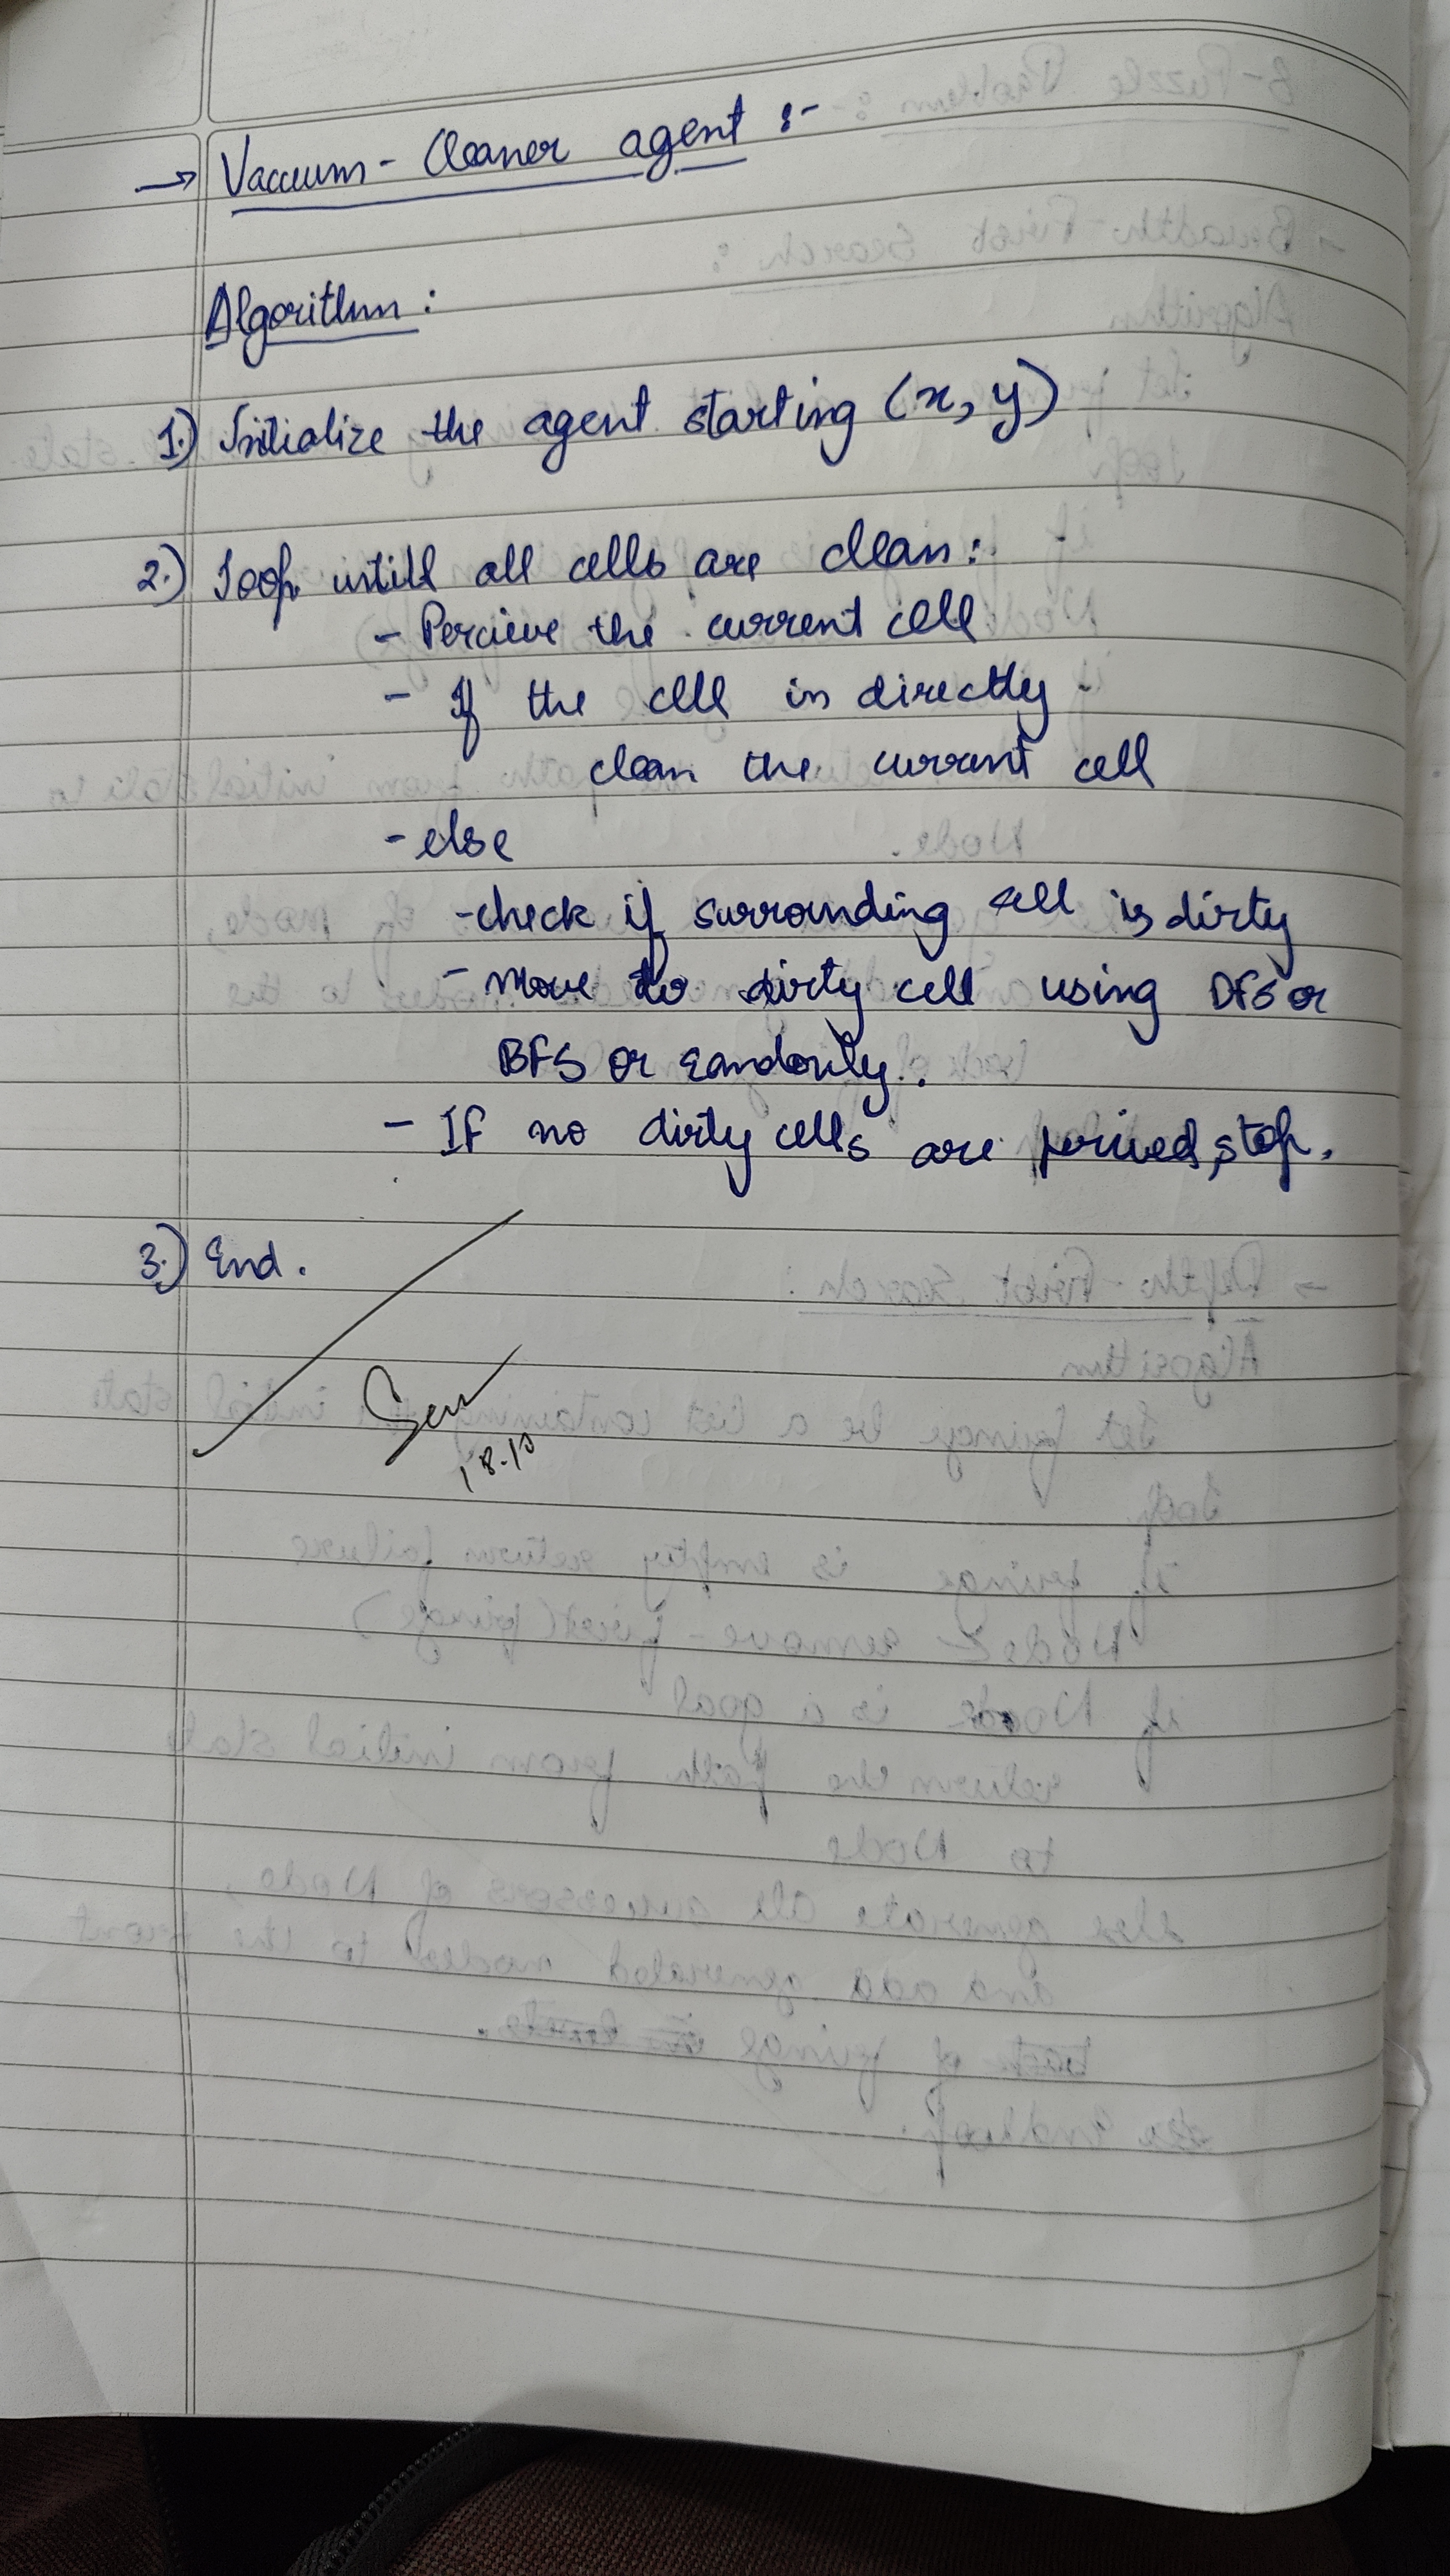 → Vaccum - Cleaner agent :-
Algorithm :
1.) Initialize the agent starting (x, y)
2.) Loop untill all cells are clean :
- Percieve the current cell
- If the cell in directly -
clean the current cell
- else
- check if surrounding cell is dirty
- Move to dirty cell using DFS or
BFS or randomly.
- If no dirty cells are percieved, stop.
3.) End.
18.10